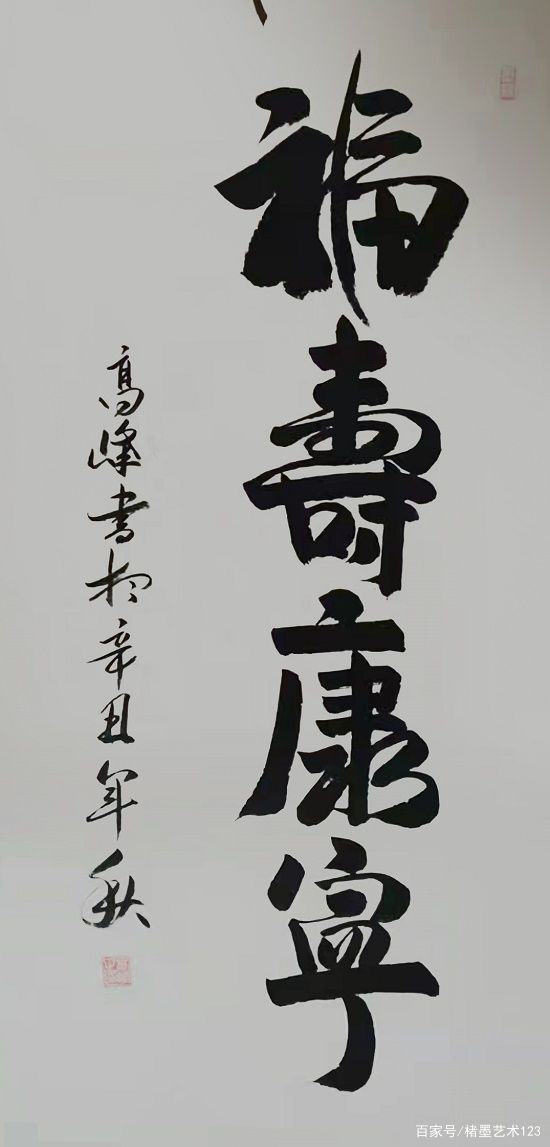 福壽康寧
高峰書於辛丑年秋
百家号/楮墨艺术123